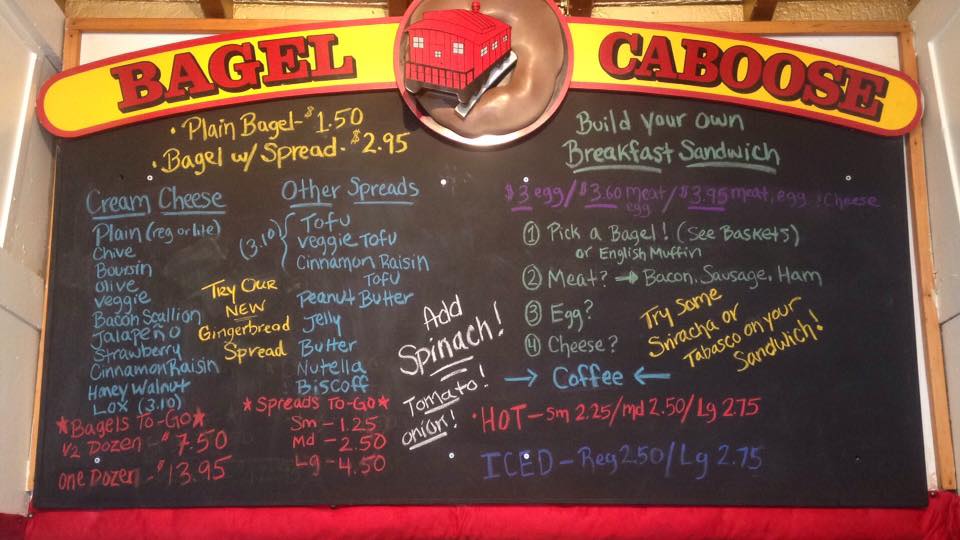 BAGEL CABOOSE
• Plain Bagel - $1.50
• Bagel w/ Spread - $2.95
Cream Cheese
Plain (reg or lite)
Chive
Boursin
Olive
Veggie
Bacon Scallion
Jalapeño
Strawberry
Cinnamon Raisin
Honey Walnut
Lox (3.10)
Try Our
NEW
Gingerbread
Spread
Other Spreads
(3.10) { Tofu
Veggie Tofu
Cinnamon Raisin
Tofu
Peanut Butter
Jelly
Butter
Nutella
Biscoff
★Bagels To-Go★
1/2 Dozen - $7.50
one Dozen - $13.95
★Spreads To-Go★
Sm - 1.25
Md - 2.50
Lg - 4.50
Add
Spinach!
Tomato!
onion!
Build Your Own
Breakfast Sandwich
$3 egg / $3.60 meat / $3.95 meat, egg, cheese
egg
① Pick a Bagel! (See Baskets)
or English Muffin
② Meat? → Bacon, Sausage, Ham
③ Egg?
④ Cheese?
Try Some
Sriracha or
Tabasco on your
Sandwich!
→ Coffee ←
• HOT - Sm 2.25/md 2.50/Lg 2.75
ICED - Reg 2.50/Lg 2.75